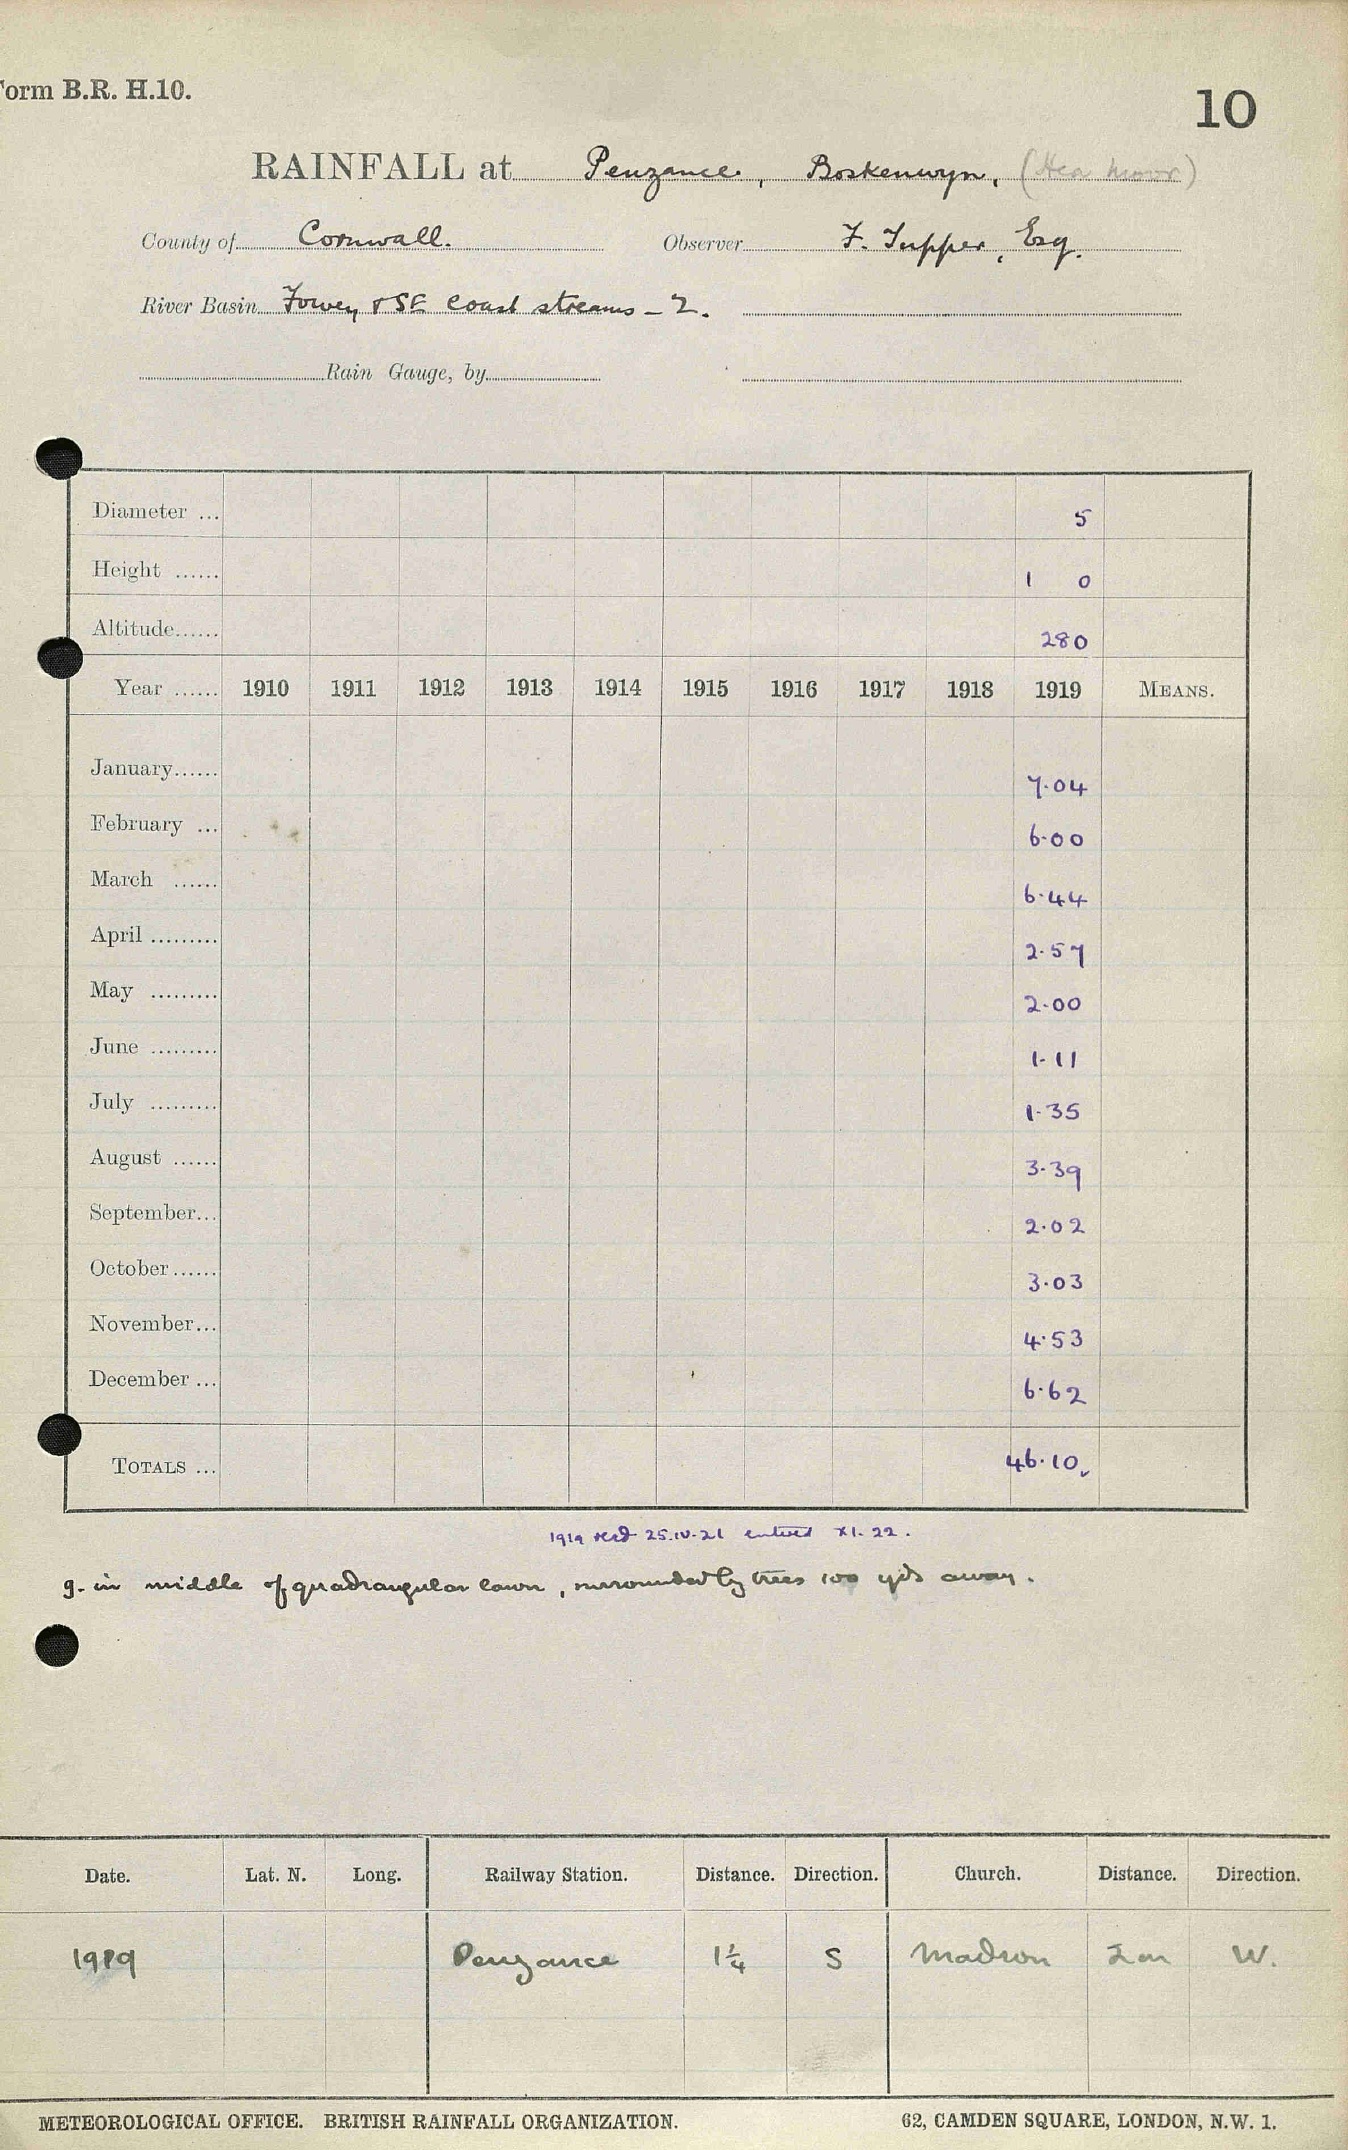 Form B.R. H.10.
10
RAINFALL at Penzance, Boskenwyn, (Hea Moor)
County of Cornwall. Observer F. Tupper, Esq.
River Basin Fowey & SE coast streams - 2.
Rain Gauge, by
Diameter ... 5
Height ...... 1 0
Altitude...... 280
Year ...... 1910 1911 1912 1913 1914 1915 1916 1917 1918 1919 MEANS.
January...... 7.04
February ... 6.00
March ...... 6.44
April ......... 2.57
May ......... 2.00
June ......... 1.11
July ......... 1.35
August ...... 3.39
September... 2.02
October...... 3.03
November... 4.53
December ... 6.62
TOTALS ... 46.10
1919 recd 25.IV.21 entered XI.22.
g. in middle of quadrangular lawn, surrounded by trees 100 yds away.
Date. Lat. N. Long. Railway Station. Distance. Direction. Church. Distance. Direction.
1919 Penzance 1¼ S Madron W.
METEOROLOGICAL OFFICE. BRITISH RAINFALL ORGANIZATION. 62, CAMDEN SQUARE, LONDON, N.W. 1.